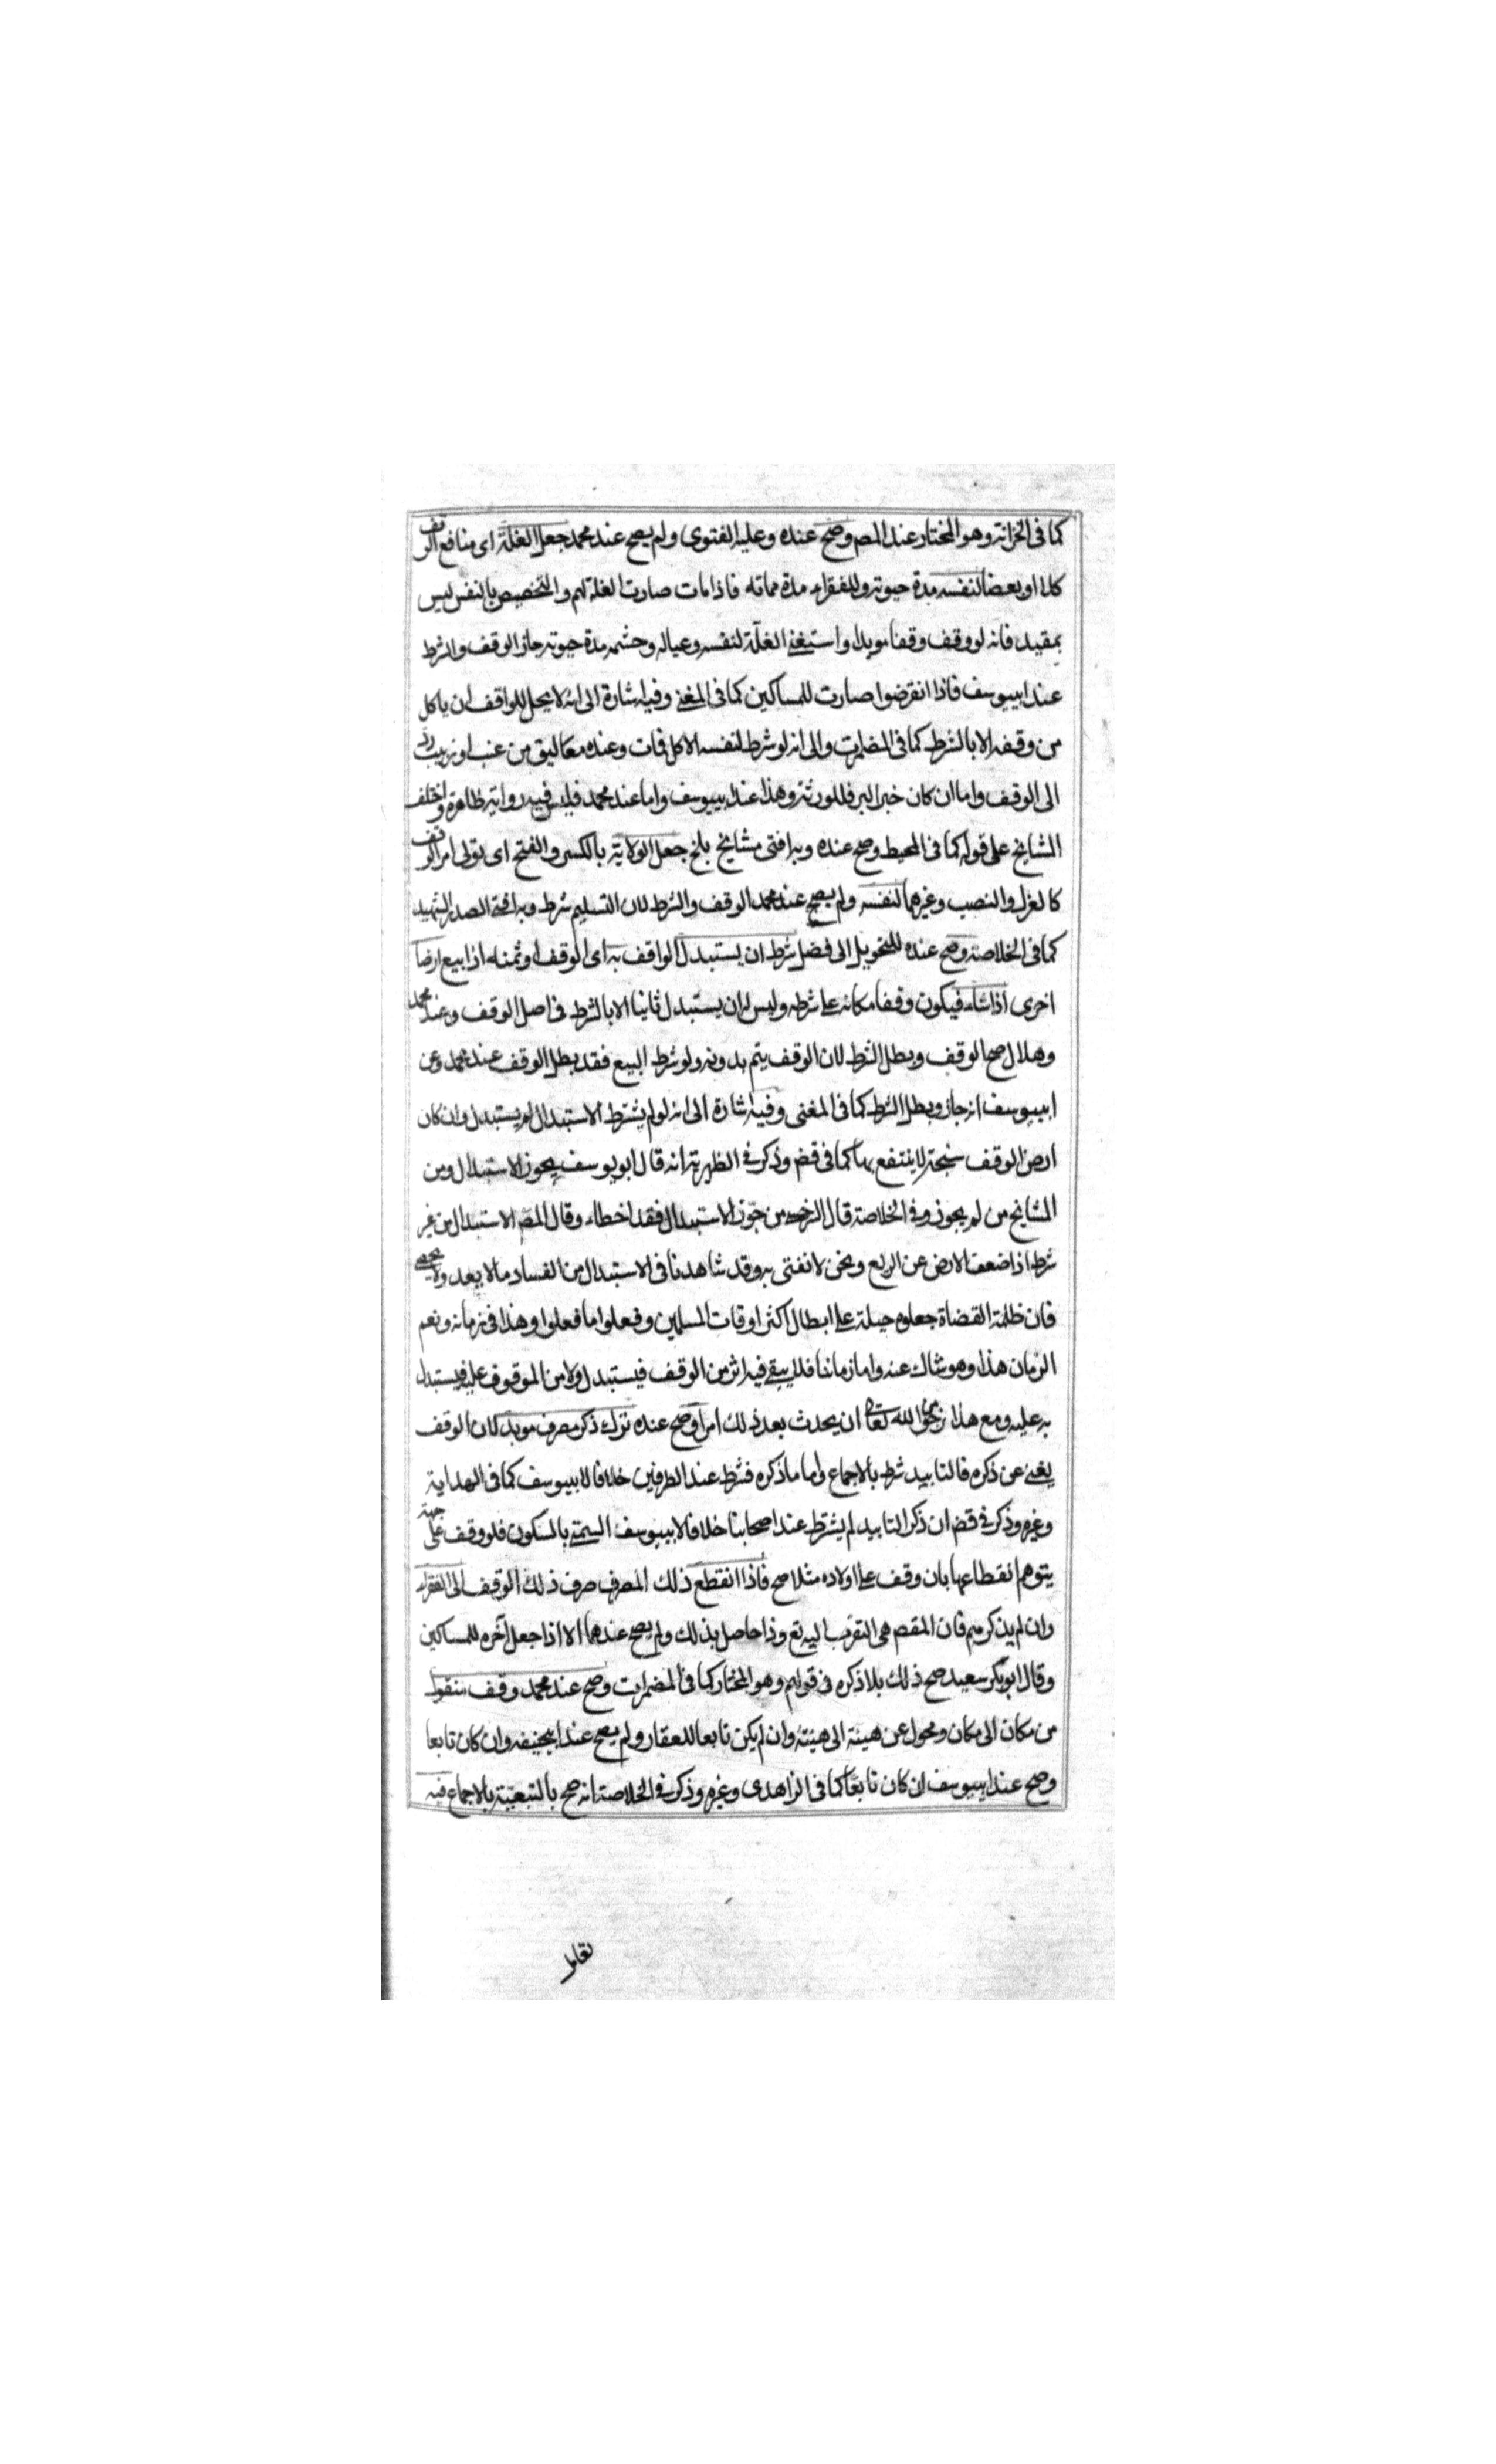 كما فى الخزانة وهو المختار عند المص وصح عنده وعليه الفتوى ولم يصح عند محمد جعل الغلة اى منافع الوقف
كلا او بعضا لنفسه مدة حيوته وللفقراء مدة مماته فاذا مات صارت الغلة لهم والتخصيص بالنفس ليس
بمقيد فانه لو وقف وقفا موبدا واستثنى الغلة لنفسه وعياله وحشمه مدة حيوته جاز الوقف والشرط
عند ابيوسف فاذا انقرضوا صارت للمساكين كما فى المغنى وفيه اشارة الى انه لا يحل للواقف ان ياكل
من وقفه الا بالشرط كما فى المضمرات والى انه لو شرط لنفسه الاكل فمات وعنده معاليق من عنب او زبيب رد
الى الوقف واما ان كان خبز البر فللورثة وهذا عند ابيوسف واما عند محمد فليس فيه رواية ظاهرة واختلف
المشايخ على قوله كما فى المحيط وصح عنده وبه افتى مشايخ بلخ جعل الولاية بالكسر والفتح اى تولى امر الوقف
كالعزل والنصب وغيرهما لنفسه ولم يصح عند محمد الوقف والشرط لان التسليم شرط وبه افتى الصدر الشهيد
كما فى الخلاصة وصح عنده للتحويل الى فضل شرط ان يستبدل الواقف به اى الوقف او ثمنه اذا بيع ارضا
اخرى اذا شاء فيكون وقفا مكانه على شرطه وليس له ان يستبدل ثانيا الا بالشرط فى اصل الوقف وعند محمد
وهلال صح الوقف وبطل الشرط لان الوقف يتم بدونه ولو شرط البيع فقد بطل الوقف عند محمد وعن
ابييوسف انه جاز وبطل الشرط كما فى المغنى وفيه اشارة الى انه لو لم يشترط الاستبدال لم يستبدل وان كان
ارض الوقف سبخة لا ينتفع بها كما فى قضخ وذكر فى الظهيرية انه قال ابو يوسف يجوز الاستبدال ومن
المشايخ من لم يجوز وفى الخلاصة قال السرخسى من جوز الاستبدال فقد اخطاء وقال المص الاستبدال من غير
شرط اذا ضعف الارض عن الريع ونحن لا نفتى به وقد شاهدنا فى الاستبدال من الفساد ما لا يعد ولا يحصى
فان ظلمة القضاة جعلوه حيلة على ابطال اكثر اوقات المسلمين وفعلوا ما فعلوا وهذا فى زمانه ونعم
الزمان هذا وهو شاك عنه واما زماننا فلا يبقى فيه اثر من الوقف فيستبدل ولا من الموقوف عليه فيستبدل
به عليه ومع هذا نرجو من الله تعالى ان يحدث بعد ذلك امرا وصح عنده ترك ذكر مصرف موبد لان الوقف
يغنى عن ذكره فالتابيد شرط بالاجماع واما ما ذكره فشرط عند الطرفين خلافا لابييوسف كما فى الهداية
وغيره وذكر فى قضخ ان ذكر التابيد لم يشترط عند اصحابنا خلافا لابييوسف السمتى بالسكون فلو وقف على جهة
يتوهم انقطاعها بان وقف على اولاده مثلا صح فاذا انقطع ذلك المصرف صرف ذلك الوقف الى الفقراء
وان لم يذكرهم فان المقصم هى التقرب اليه تع وذا حاصل بذلك ولم يصح عندهما الا اذا جعل آخره للمساكين
وقال ابو بكر سعيد صح ذلك بلا ذكره فى قولهم وهو المختار كما فى المضمرات وصح عند محمد وقف منقول
من مكان الى مكان ومحول عن هيئة الى هيئة وان لم يكن تابعا للعقار ولم يصح عند ابيحنيفه وان كان تابعا
وصح عند ابييوسف ان كان تابعا كما فى الزاهدى وغيره وذكر فى الخلاصة انه صح بالتبعية بالاجماع فيه
تعامل